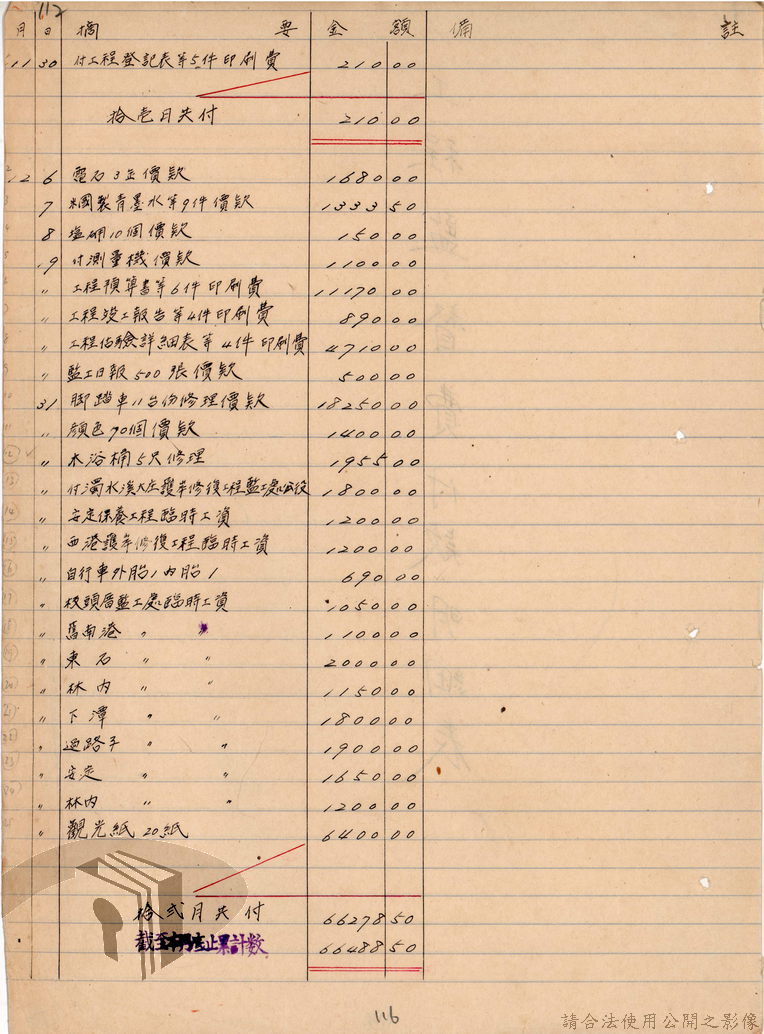 112
月 日 摘 要 金 額 備 註
11 30 付工程登記表等5件印刷費 210 00
拾壱月共付 210 00
12 6 電石3缶價款 1680 00
7 米國製青墨水等9件價款 1333 50
8 塩硼10個價款 150 00
9 付測量機價款 1100 00
〃 工程預算書等6件印刷費 11170 00
〃 工程竣工報告等4件印刷費 890 00
〃 工程估驗詳細表等4件印刷費 4710 00
〃 監工日報500張價款 500 00
31 脚踏車11台份修理價款 18250 00
〃 顏色70個價款 1400 00
〃 木浴桶5只修理 1955 00
〃 付濁水溪大庄護岸修復工程監工處公役 1800 00
〃 安定保養工程臨時工資 1200 00
〃 西港護岸修復工程臨時工資 1200 00
〃 自行車外胎1內胎1 690 00
〃 校頭厝監工處臨時工資 1050 00
〃 舊南港 〃 〃 1100 00
〃 東石 〃 〃 2000 00
〃 林內 〃 〃 1150 00
〃 下潭 〃 〃 1800 00
〃 過路子 〃 〃 1900 00
〃 安定 〃 〃 1650 00
〃 林内 〃 〃 1200 00
〃 觀光紙20紙 6400 00
拾弍月共付 66278 50
截至本月止累計數 66488 50
116
請合法使用公開之影像